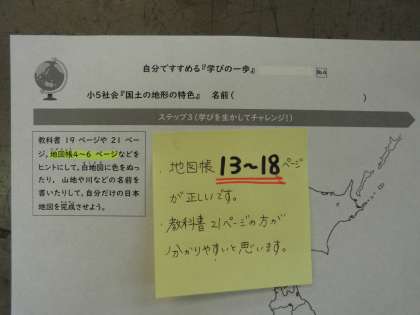 自分ですすめる『学びの一歩』
No.6
小5社会『国土の地形の特色』 名前( )
ステップ3(学びを生かしてチャレンジ!)
教科書 19 ページや 21 ペー
ジ、地図帳4~6 ページなどを
ヒントにして、白地図に色をぬっ
たり、山地や川などの名前を
書いたりして、自分だけの日本
地図を完成させよう。
・地図帳 13~18ページ
が正しいです。
・教科書21ページの方が
分かりやすいと思います。